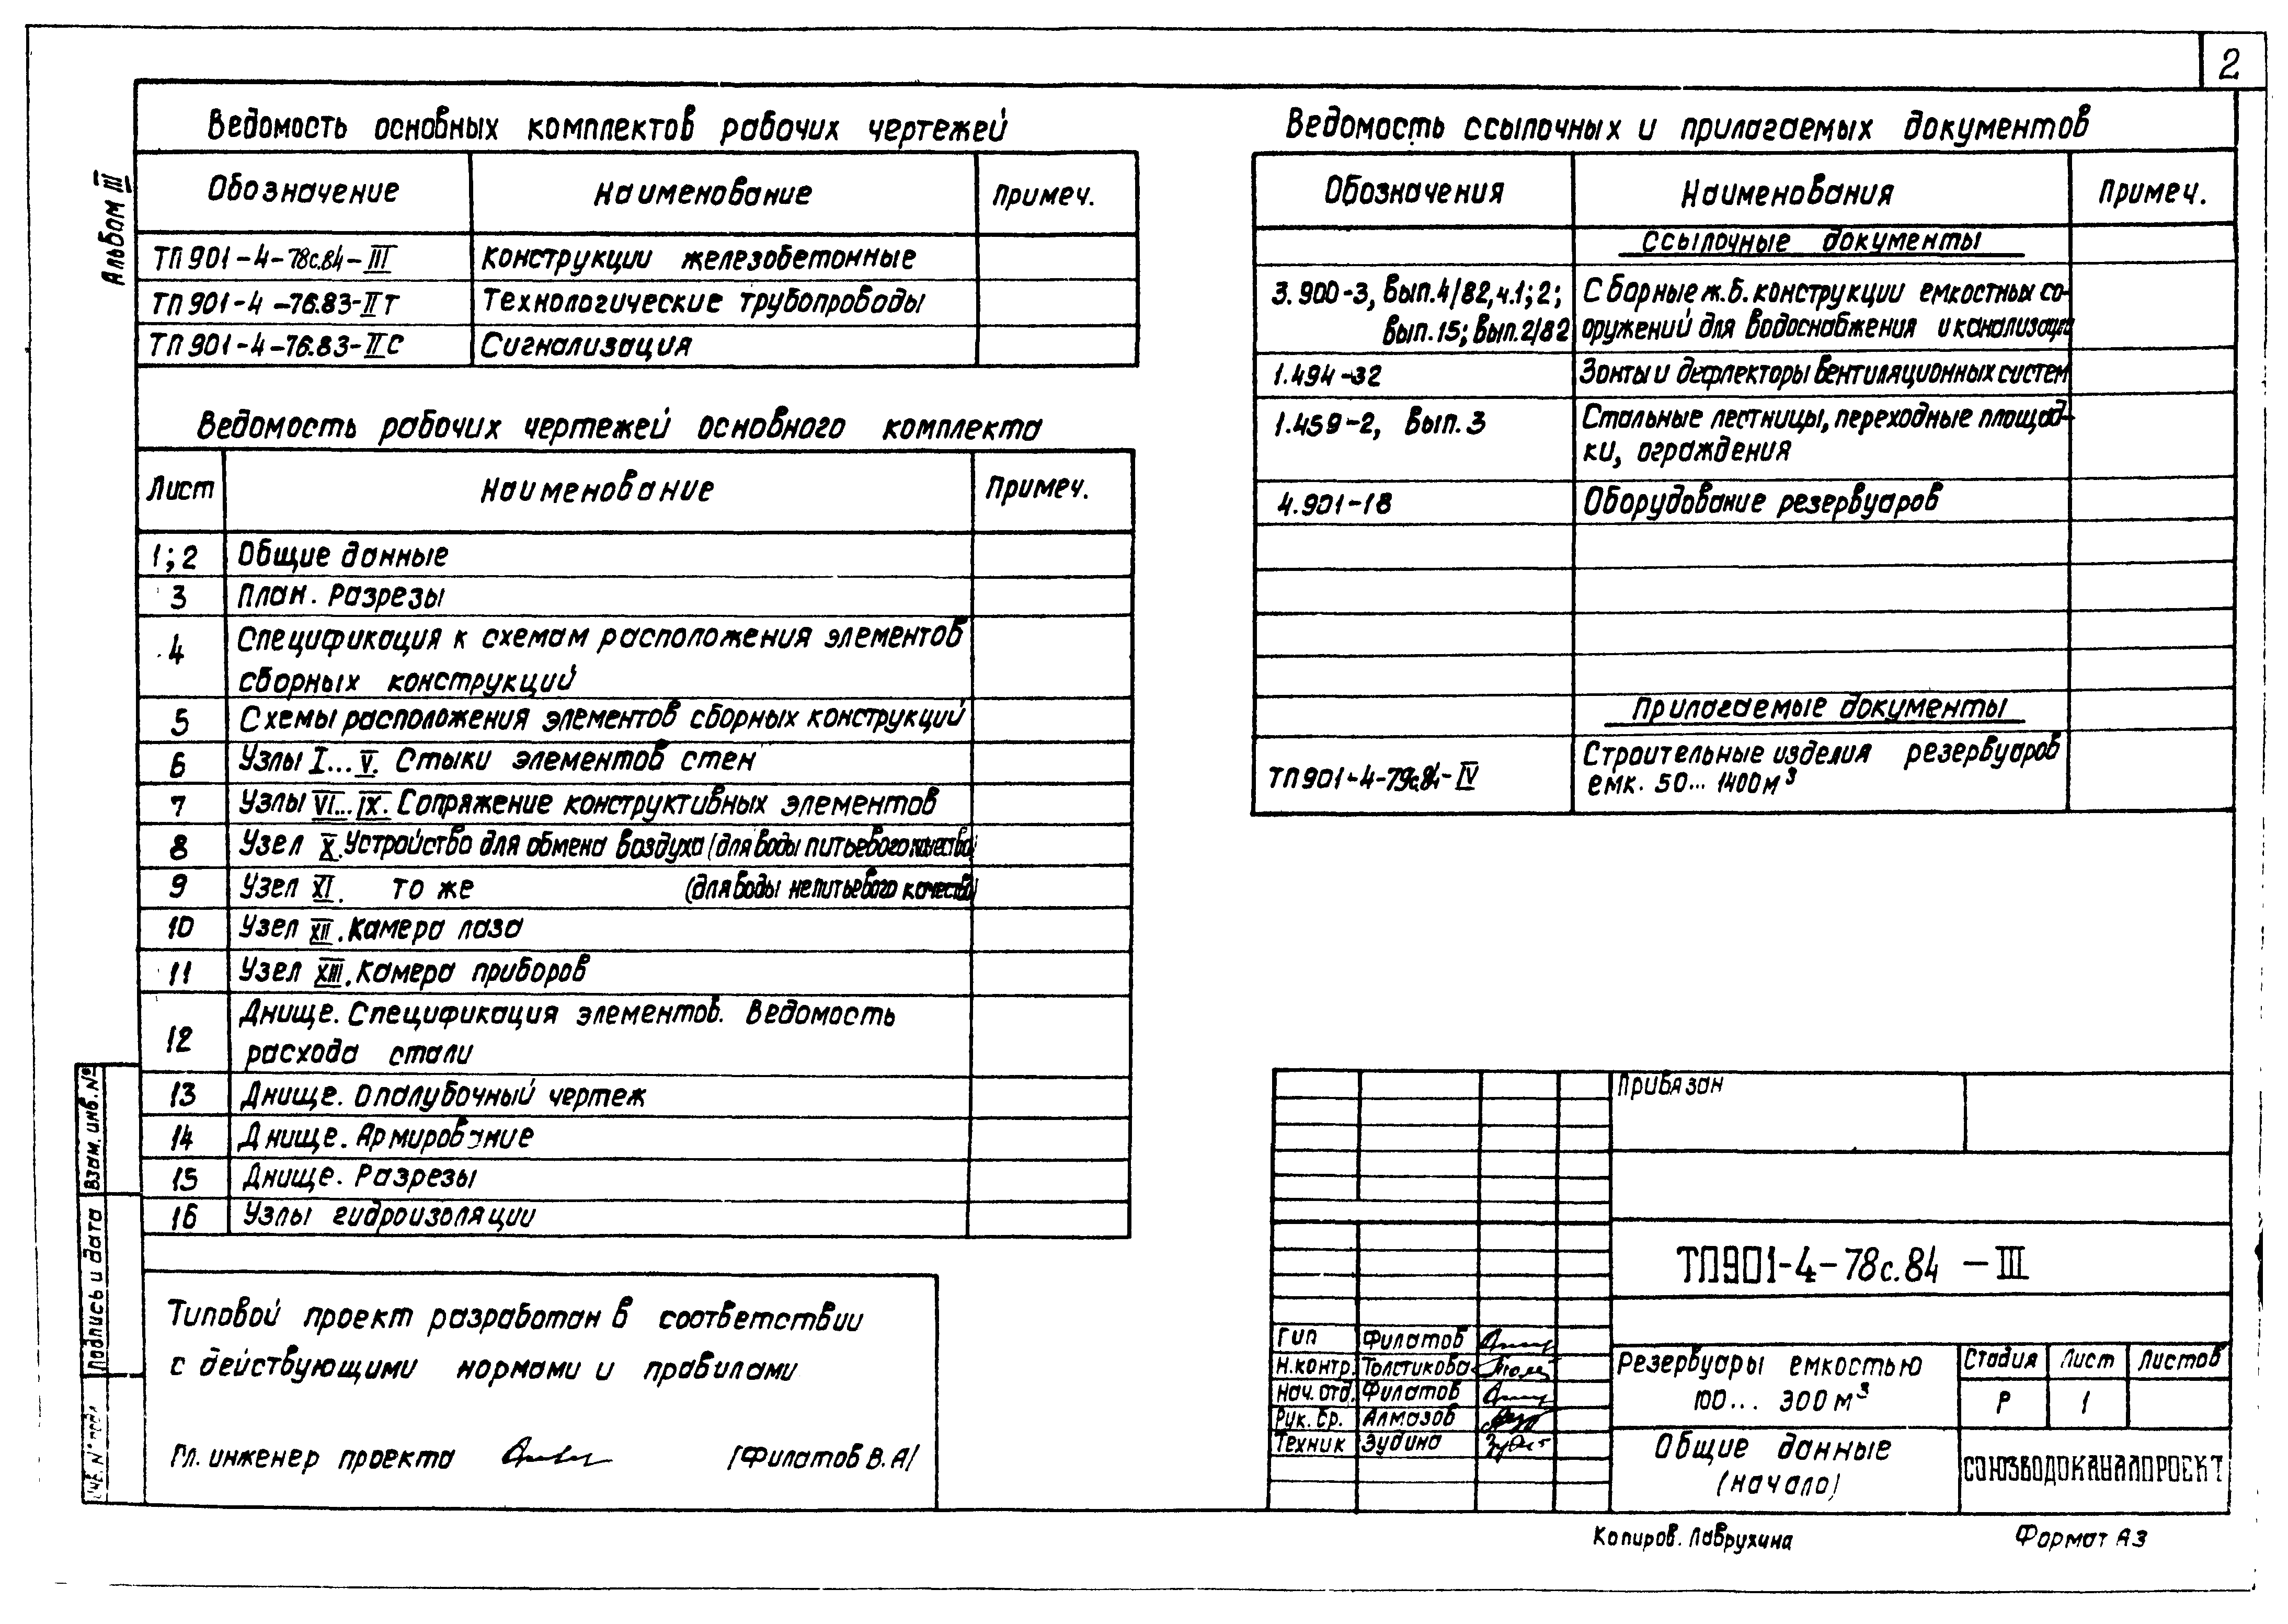 2
Альбом III
Ведомость основных комплектов рабочих чертежей
Обозначение Наименование Примеч.
ТП 901-4-78с.84-III Конструкции железобетонные
ТП 901-4-76.83-II Т Технологические трубопроводы
ТП 901-4-76.83-II С Сигнализация
Ведомость рабочих чертежей основного комплекта
Лист Наименование Примеч.
1; 2 Общие данные
3 План. Разрезы
4 Спецификация к схемам расположения элементов
сборных конструкций
5 Схемы расположения элементов сборных конструкций
6 Узлы I...V. Стыки элементов стен
7 Узлы VI...IX. Сопряжение конструктивных элементов
8 Узел X. Устройство для обмена воздуха (для воды питьевого качества)
9 Узел XI. то же (для воды непитьевого качества)
10 Узел XII. Камера лаза
11 Узел XIII. Камера приборов
12 Днище. Спецификация элементов. Ведомость
расхода стали
13 Днище. Опалубочный чертеж
14 Днище. Армирование
15 Днище. Разрезы
16 Узлы гидроизоляции
Типовой проект разработан в соответствии
с действующими нормами и правилами
Гл. инженер проекта /Филатов В.А/
Взам. инв. №
Подпись и дата
Инв. № подл.
Ведомость ссылочных и прилагаемых документов
Обозначения Наименования Примеч.
Ссылочные документы
3.900-3, вып.4/82, ч.1; 2; Сборные ж.б. конструкции емкостных со-
вып.15; вып.2/82 оружений для водоснабжения и канализации
1.494-32 Зонты и дефлекторы вентиляционных систем
1.459-2, вып.3 Стальные лестницы, переходные площад-
ки, ограждения
4.901-18 Оборудование резервуаров
Прилагаемые документы
ТП 901-4-79с.84-IV Строительные изделия резервуаров
емк. 50... 1400 м³
Привязан
ТП901-4-78с.84 -III
Гип Филатов
Н.контр. Толстикова
Нач. отд. Филатов
Рук. бр. Алмазов
Техник Зудина
Резервуары емкостью
100... 300 м³
Стадия Лист Листов
Р 1
Общие данные
(начало)
СОЮЗВОДОКАНАЛПРОЕКТ
Копиров. Лаврухина Формат А3